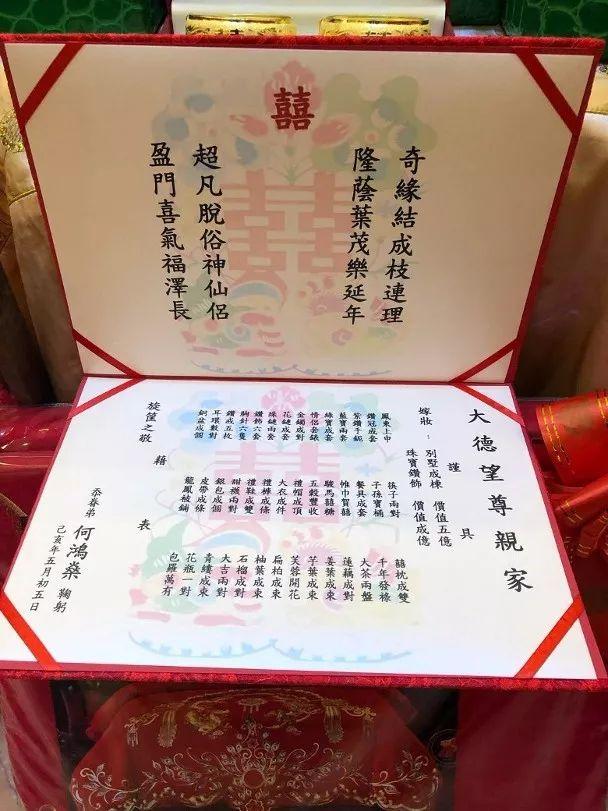 囍
奇緣結成枝連理
隆蔭葉茂樂延年
超凡脫俗神仙侶
盈門喜氣福澤長
大德望尊親家
謹具
嫁妝：別墅成棟 價值五億
珠寶鑽飾 價值成億
鳳東上巾 筷子兩對 囍枕成雙
鑽冠成套 子孫寶桶 千年發
紫鑽手鈪 餐具成套 大茶兩盤
藍寶兩套 帷巾賀囍 蓮藕成對
綠寶成套 駿馬囍糖 姜葉成束
情侶套錶 五穀豐收 芋葉成束
金鐲成對 禮帽成頂 芙蓉開花
花鏈成套 大衣成件 扁柏成束
珠鏈兩套 禮褲成條 柚葉成束
鑽飾六套 禮鞋成雙 石榴成對
胸針六隻 甜襪兩對 大吉兩對
鑽戒五枚 銀包成個 青縷成束
耳環數對 皮帶成條 花瓶一對
銅盆成個 龍鳳被鋪 包羅萬有
藉 表
旋筐之敬
忝眷弟 何鴻燊 鞠躬
己亥年五月初五日